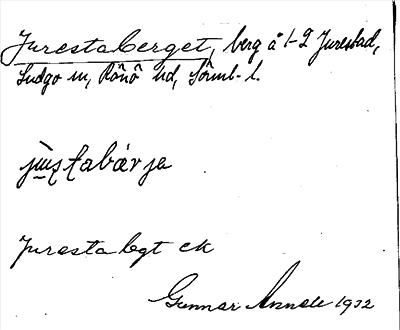 Jurestaberget, berg å 1-2 Jurestad,
Ludgo sn, Rönö hd, Sörml. l.
Juresta bgt ek
Gunnar 1932